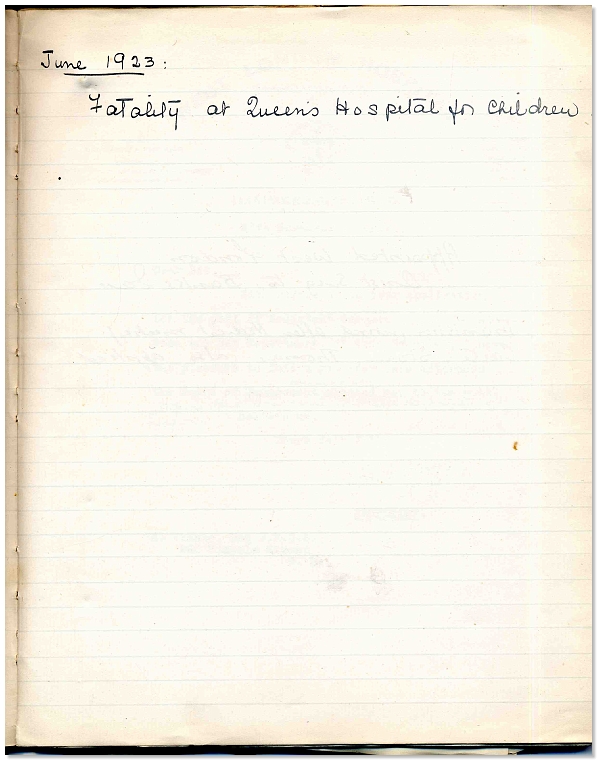 June 1923:
Fatality at Queen's Hospital for Children.